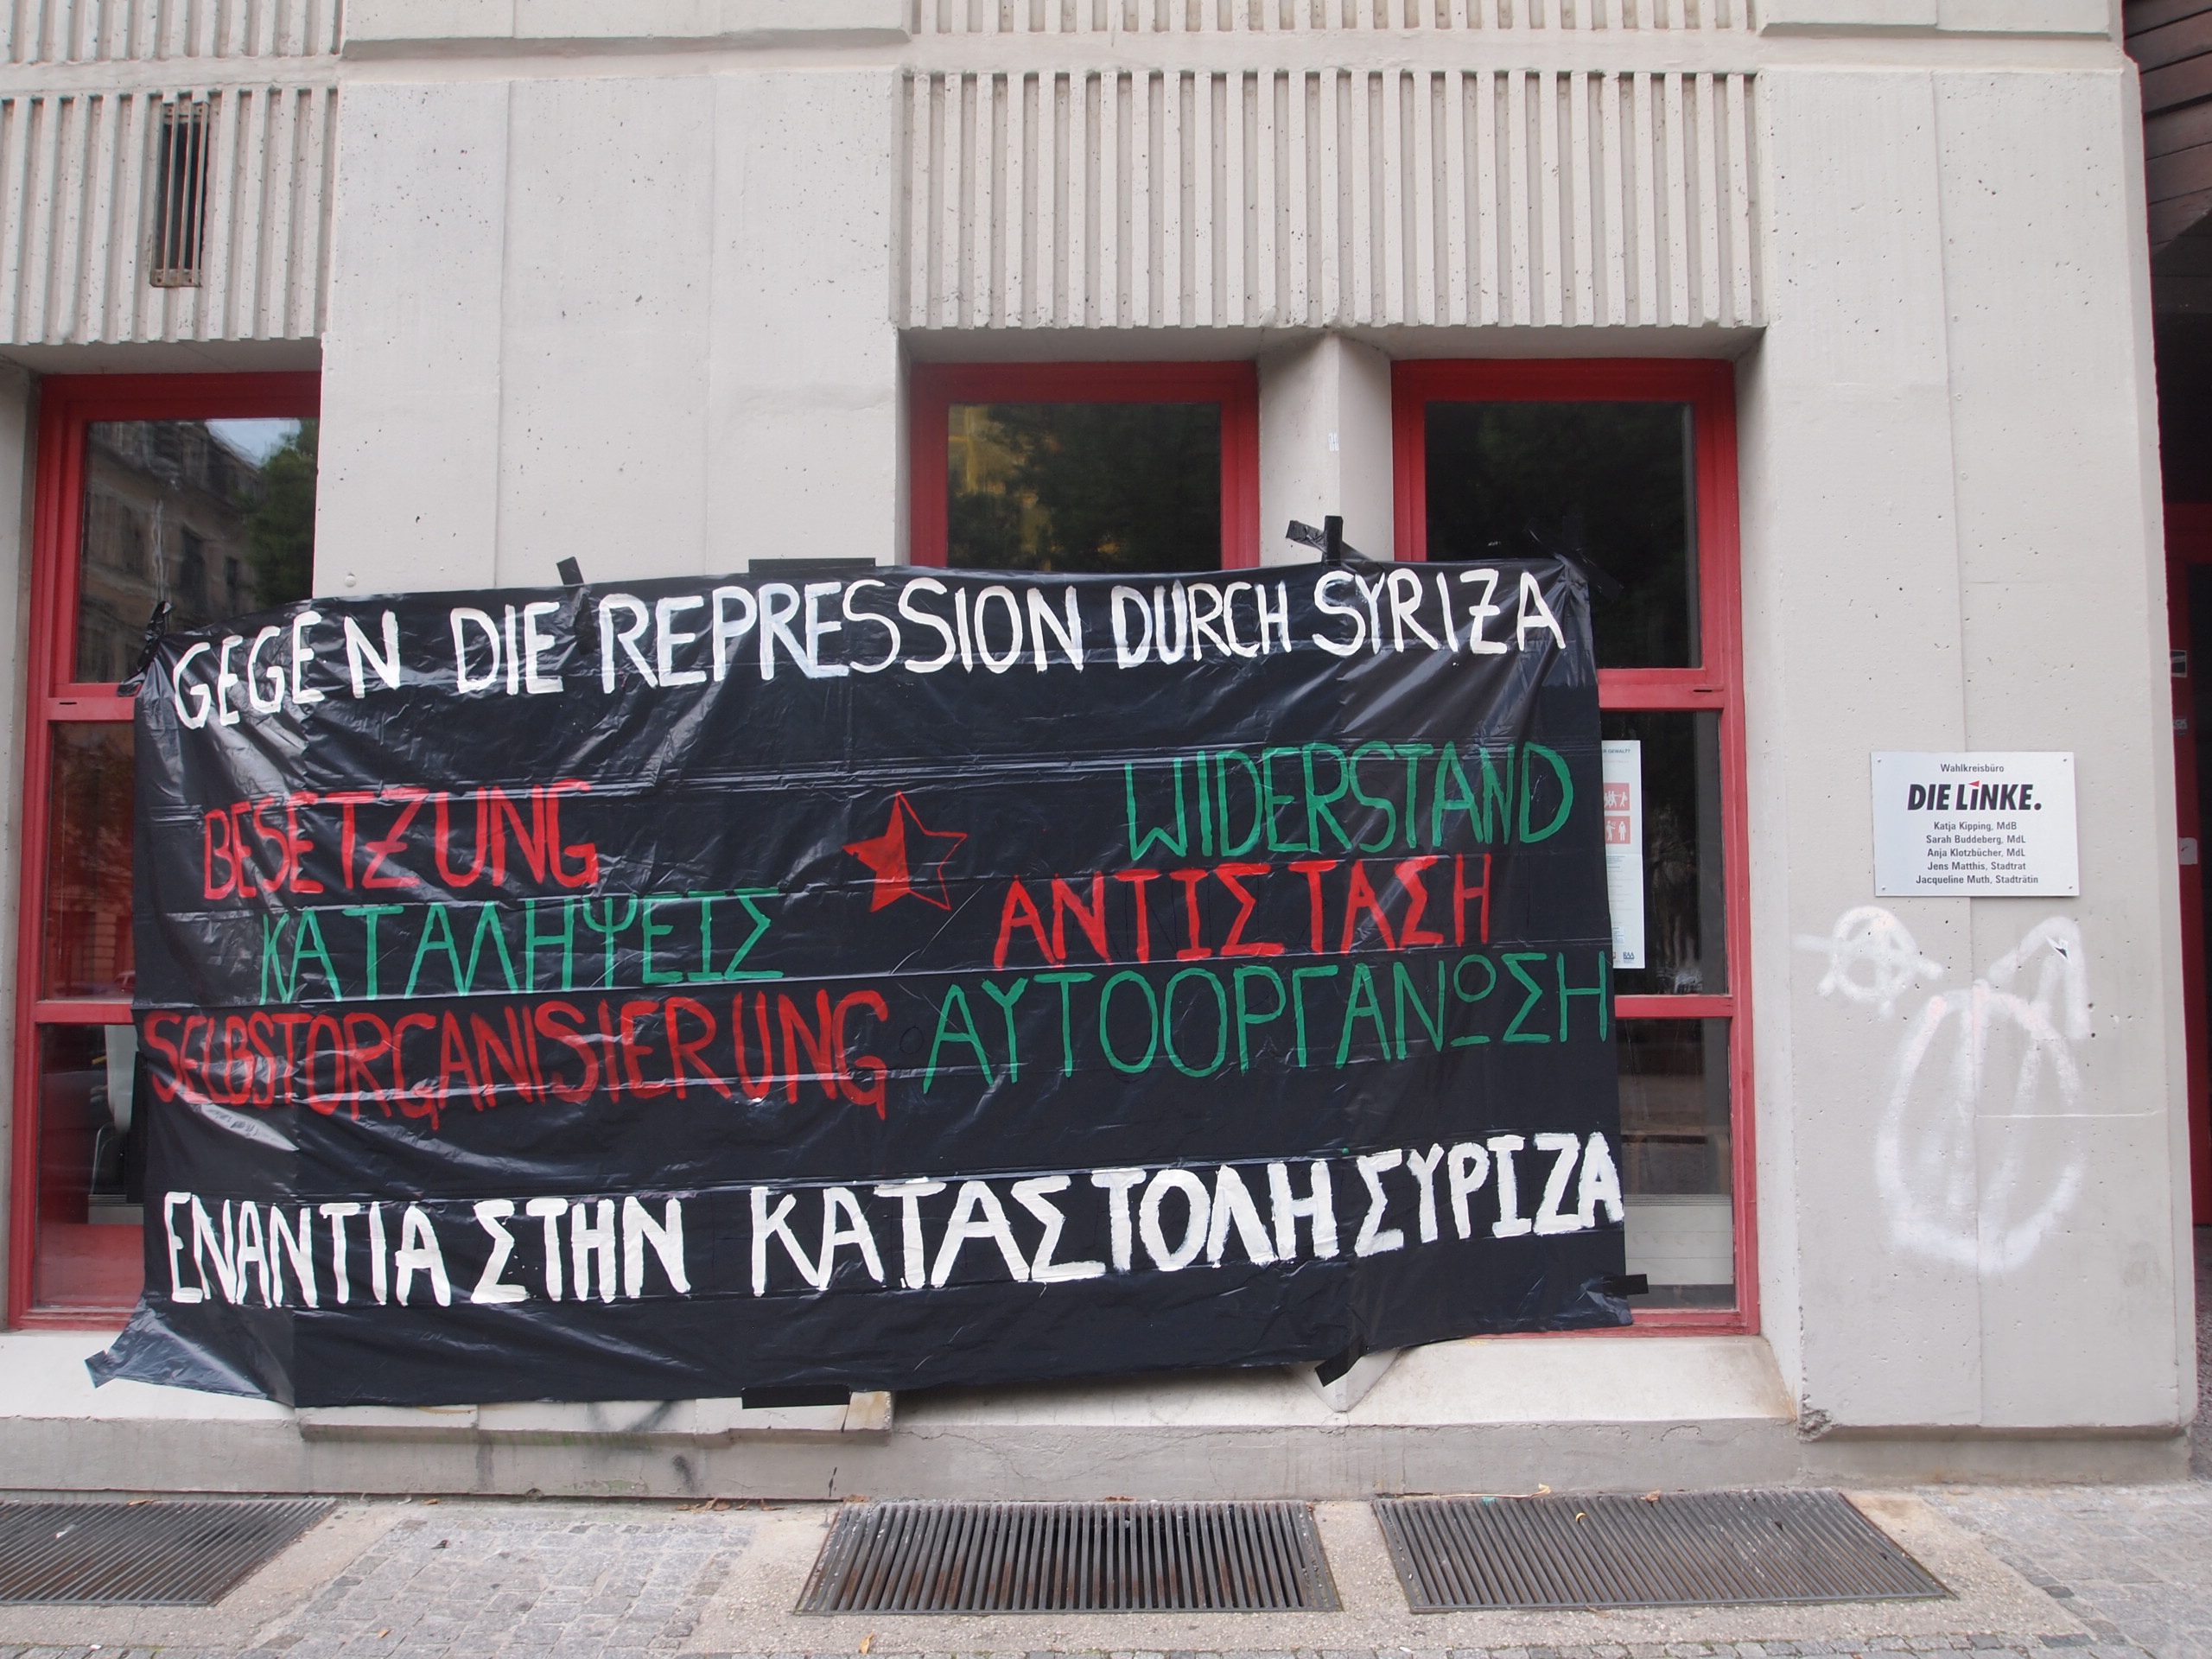 GEGEN DIE REPRESSION DURCH SYRIZA
BESETZUNG
WIDERSTAND
ΚΑΤΑΛΗΨΕΙΣ
ΑΝΤΙΣΤΑΣΗ
SELBSTORGANISIERUNG
ΑΥΤΟΟΡΓΑΝΩΣΗ
ΕΝΑΝΤΙΑ ΣΤΗΝ ΚΑΤΑΣΤΟΛΗ ΣΥΡΙΖΑ
Wahlkreisbüro
DIE LINKE.
Katja Kipping, MdB
Sarah Buddeberg, MdL
Anja Klotzbücher, MdL
Jens Matthis, Stadtrat
Jacqueline Muth, Stadträtin